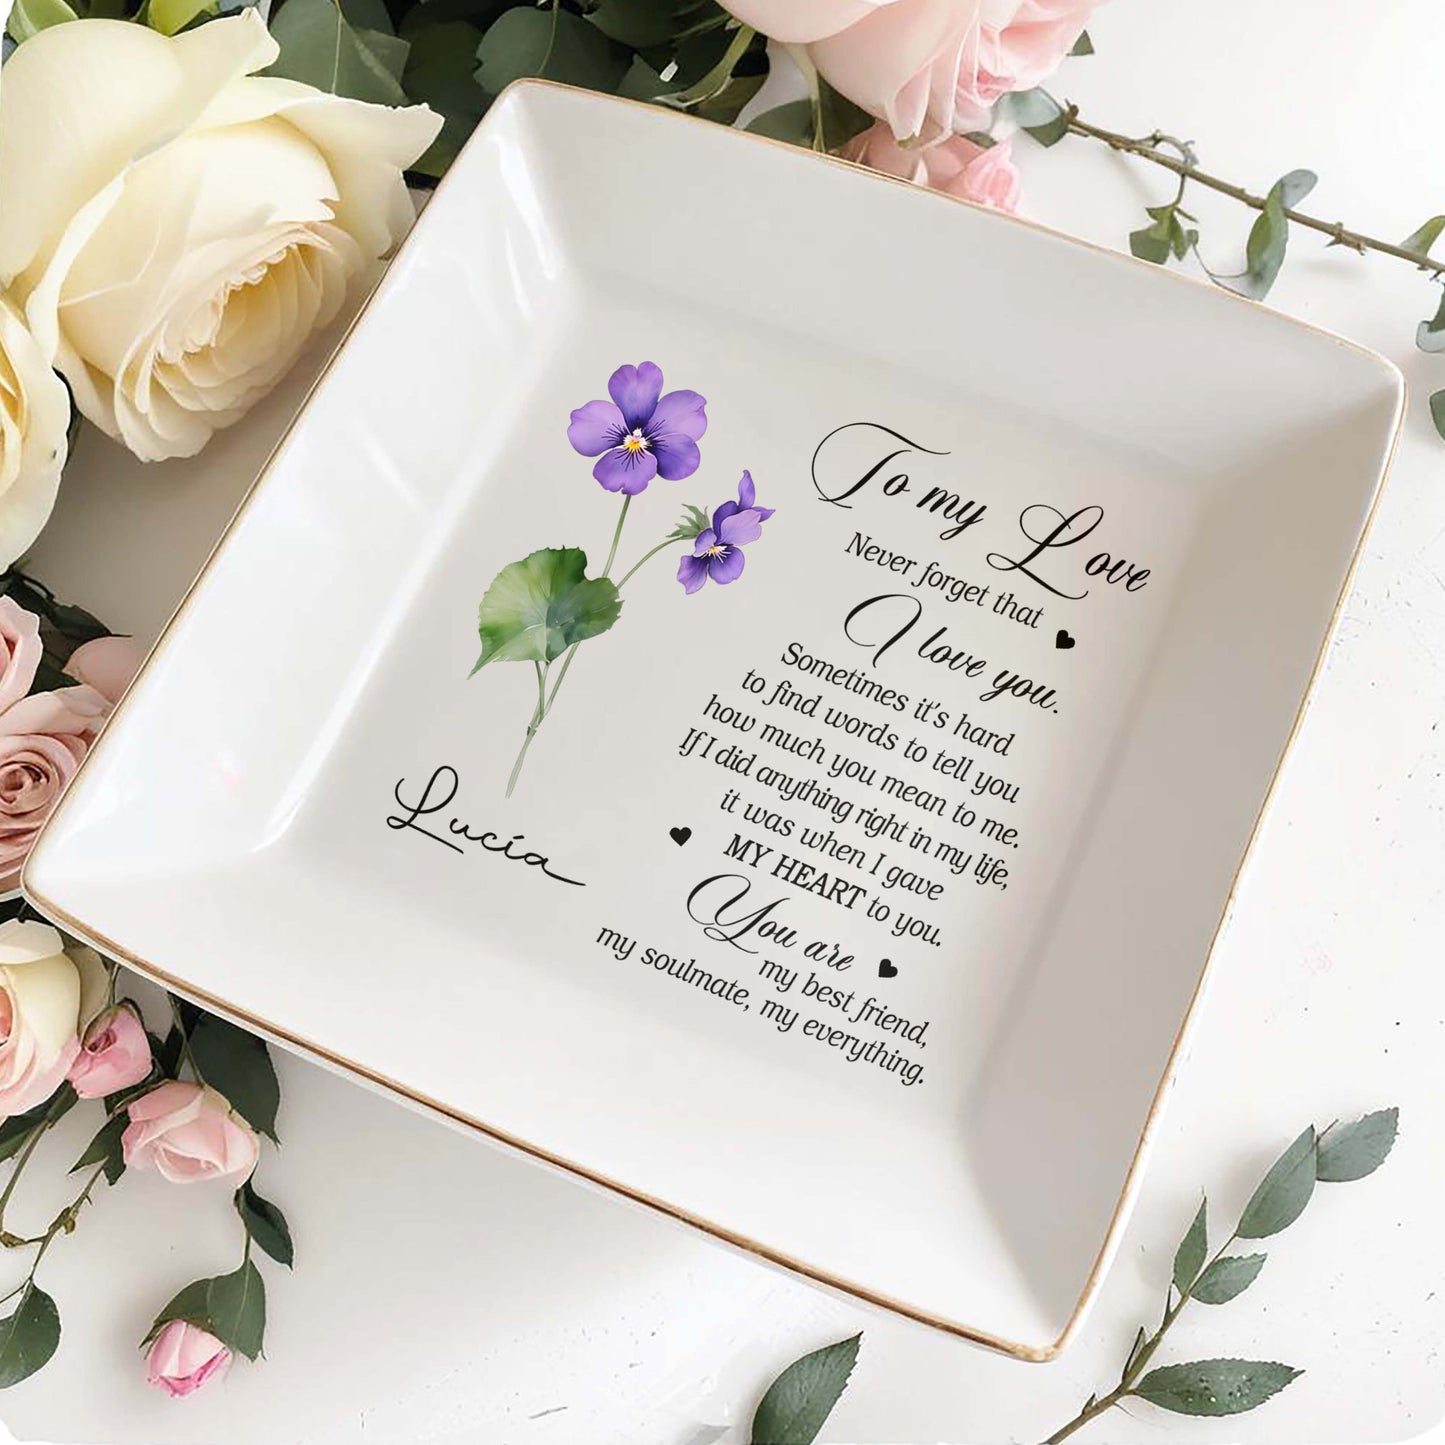 To my Love
Never forget that
I love you.
Sometimes it's hard
to find words to tell you
how much you mean to me.
If I did anything right in my life,
it was when I gave
MY HEART to you.
You are
my best friend,
my soulmate, my everything.
Lucía